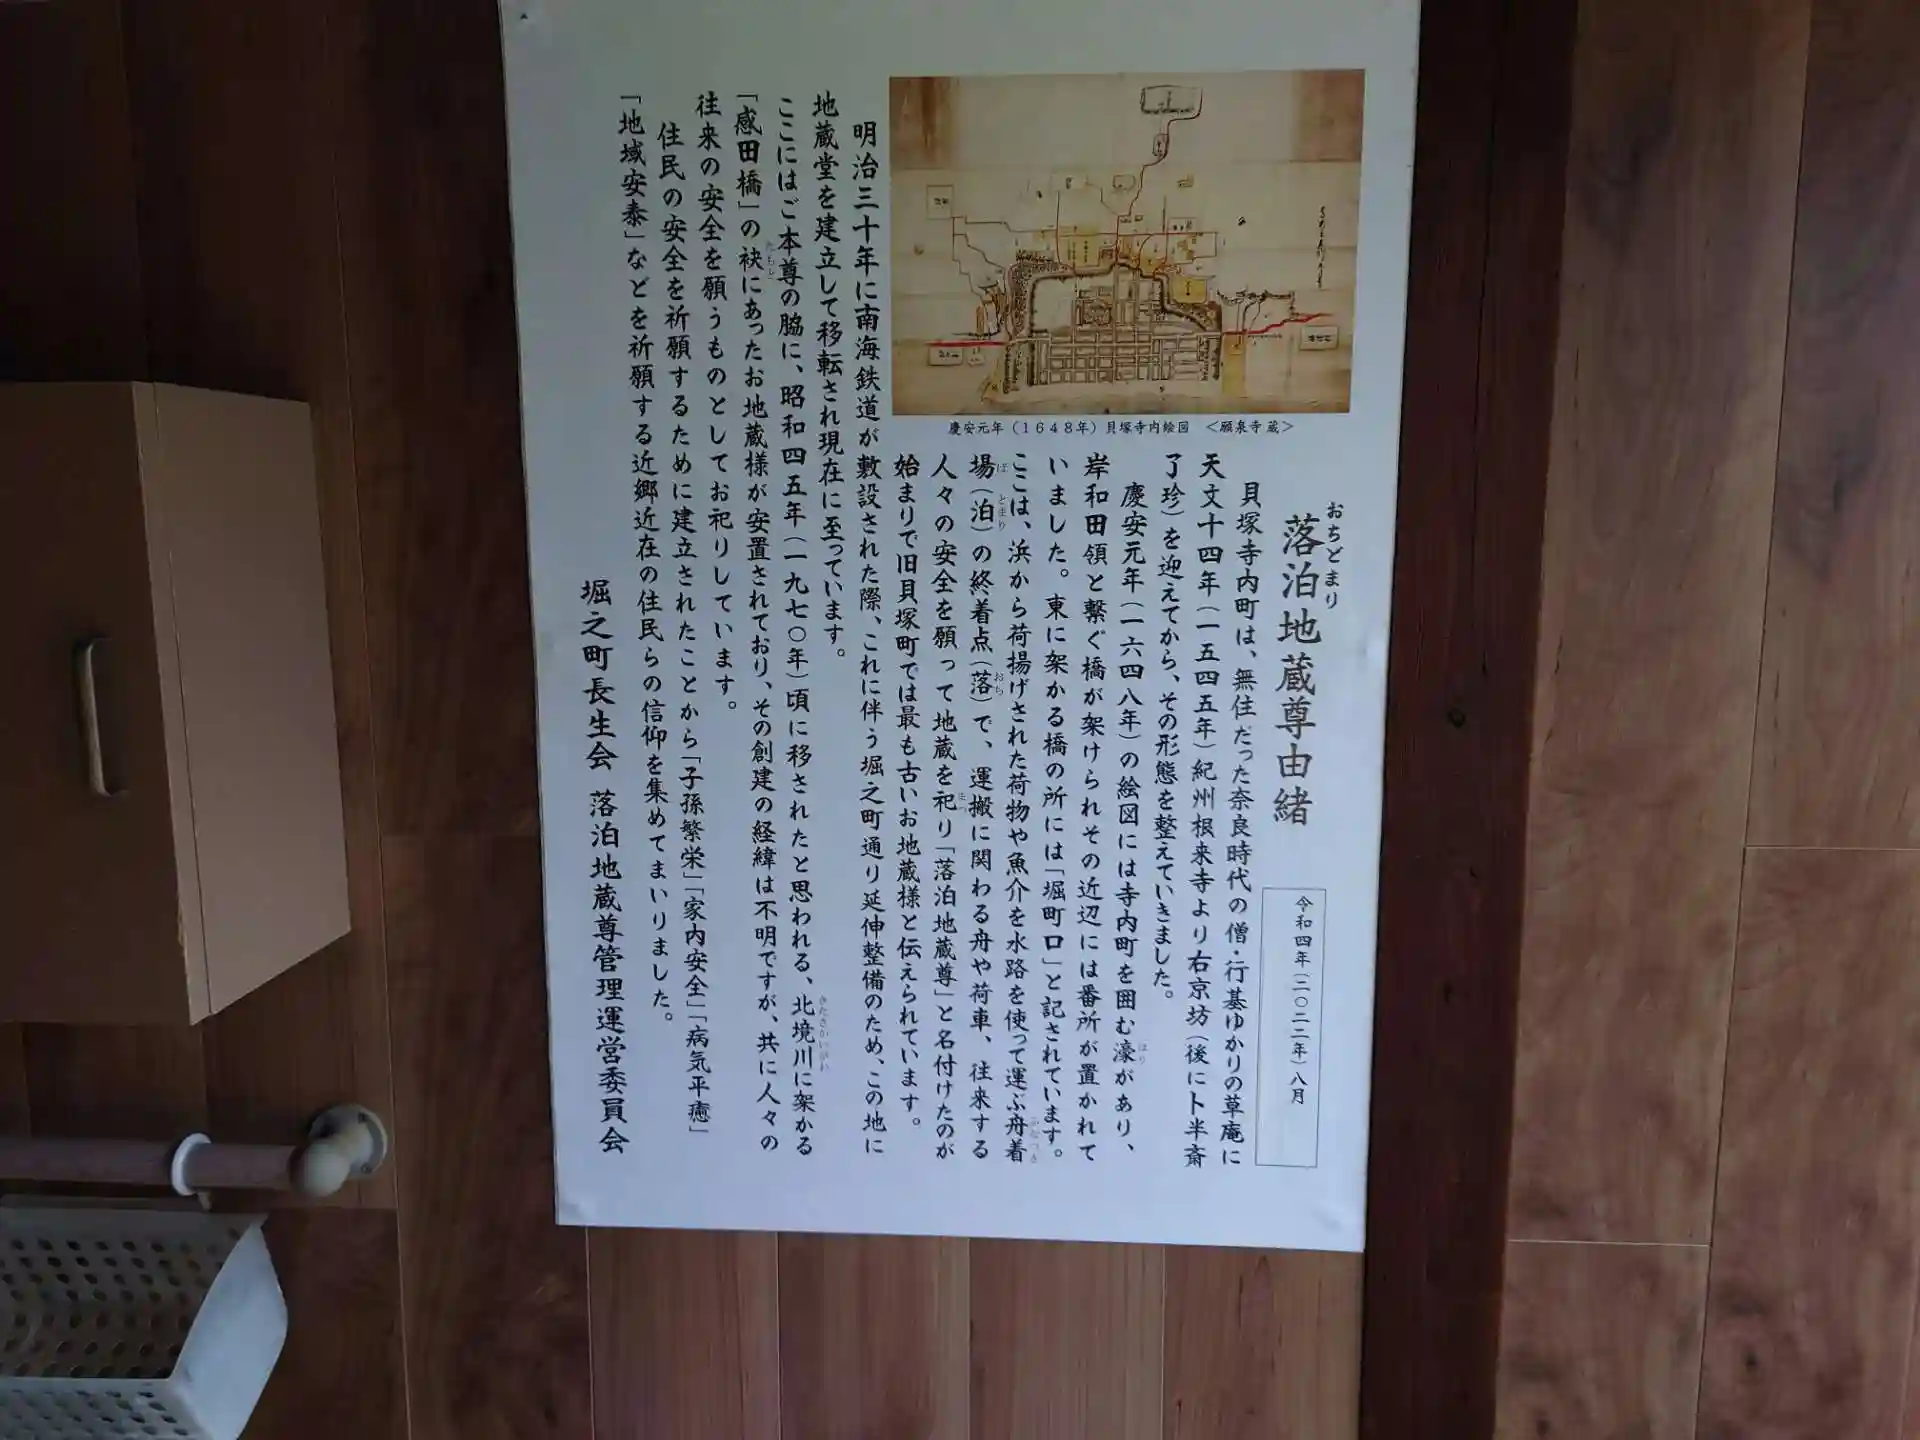 落泊地蔵尊由緒
おちどまり
令和四年(二〇二二年)八月
貝塚寺内町は、無住だった奈良時代の僧・行基ゆかりの草庵に
天文十四年(一五四五年)紀州根来寺より右京坊(後に卜半斎
了珍)を迎えてから、その形態を整えていきました。
慶安元年(一六四八年)の絵図には寺内町を囲む濠があり、
ほり
岸和田領と繋ぐ橋が架けられその近辺には番所が置かれて
いました。東に架かる橋の所には「堀町口」と記されています。
ここは、浜から荷揚げされた荷物や魚介を水路を使って運ぶ舟着
ふなつき
場(泊)の終着点(落)で、運搬に関わる舟や荷車、往来する
ば とまり おち
人々の安全を願って地蔵を祀り「落泊地蔵尊」と名付けたのが
まつ
始まりで旧貝塚町では最も古いお地蔵様と伝えられています。
慶安元年(1648年)貝塚寺内絵図 <願泉寺蔵>
明治三十年に南海鉄道が敷設された際、これに伴う堀之町通り延伸整備のため、この地に
地蔵堂を建立して移転され現在に至っています。
ここにはご本尊の脇に、昭和四五年(一九七〇年)頃に移されたと思われる、北境川に架かる
きたさかいがわ
「感田橋」の袂にあったお地蔵様が安置されており、その創建の経緯は不明ですが、共に人々の
たもと
往来の安全を願うものとしてお祀りしています。
住民の安全を祈願するために建立されたことから「子孫繁栄」「家内安全」「病気平癒」
「地域安泰」などを祈願する近郷近在の住民らの信仰を集めてまいりました。
堀之町長生会 落泊地蔵尊管理運営委員会